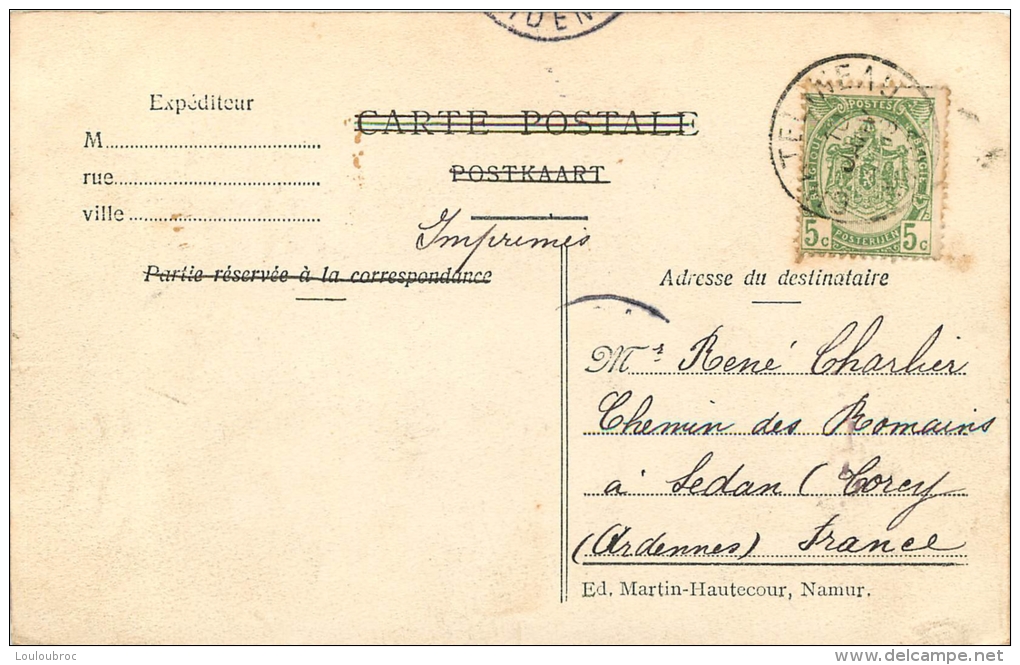 IDEN
Expéditeur
CARTE POSTALE
M
POSTKAART
rue
ville
Imprimés
Partie réservée à la correspondance
POSTES
BELGIQUE
BELGIË
5c POSTERIJEN 5c
Adresse du destinataire
Mr René Charlier
Chemin des Romains
à Sedan (Torcy
(Ardennes) France
Ed. Martin-Hautecour, Namur.
Louloubroc
delcampe.net